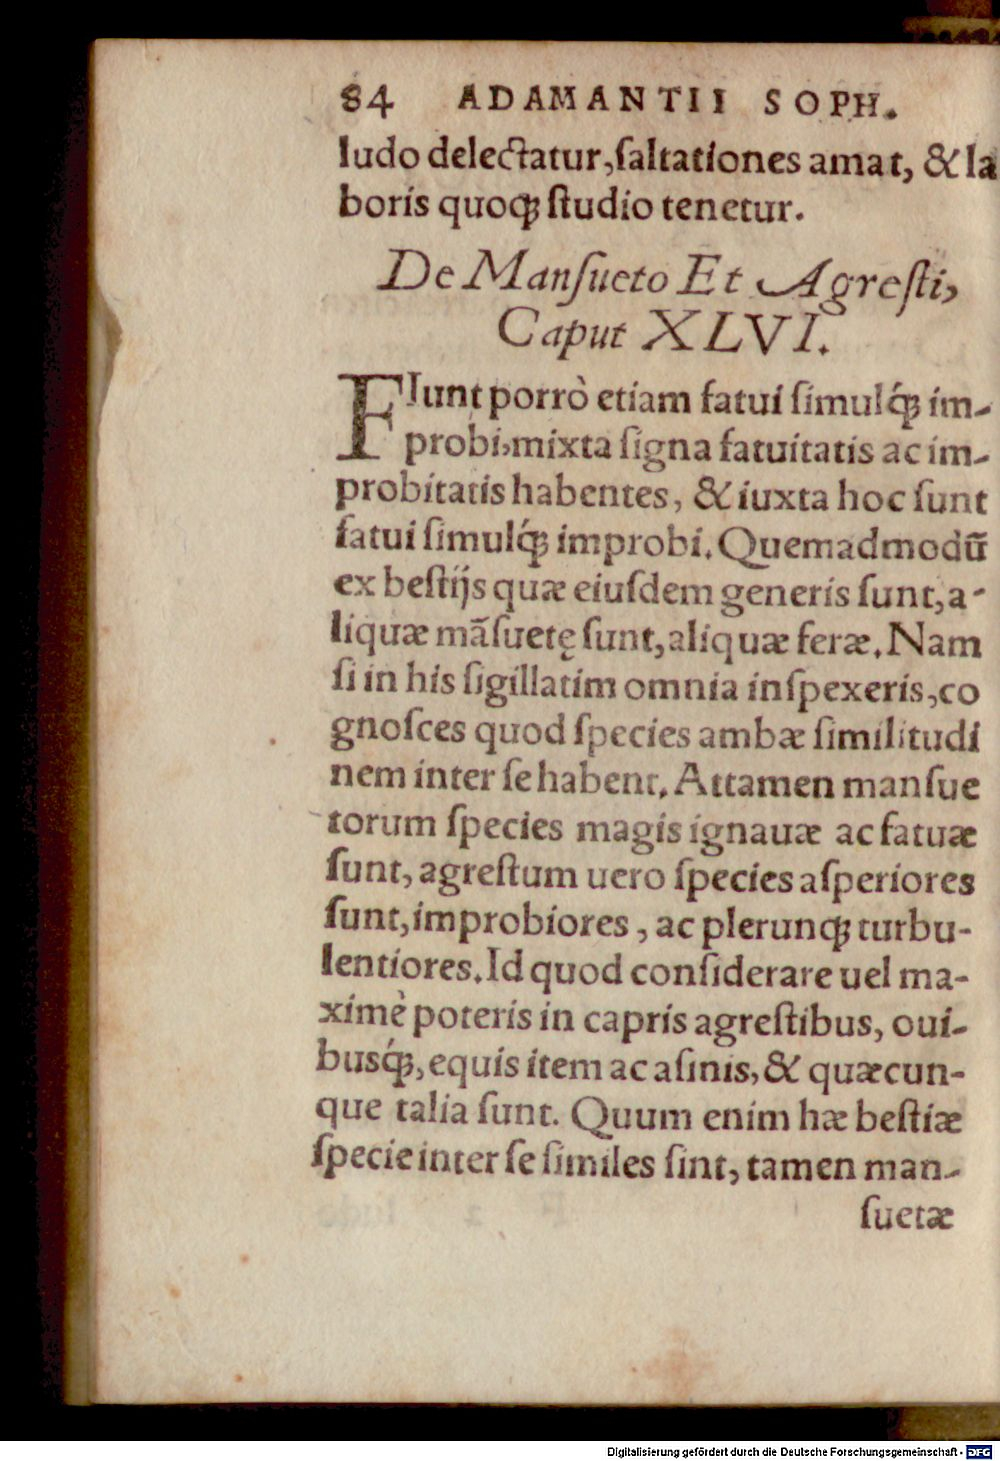 84 ADAMANTII SOPH.
ludo delectatur, ſaltationes amat, & la
boris quoqꝫ ſtudio tenetur.
De Manſueto Et Agreſti,
Caput XLVI.
FIunt porrò etiam fatui ſimulqꝫ́ im-
probi, mixta ſigna fatuitatis ac im-
probitatis habentes, & iuxta hoc ſunt
fatui ſimulqꝫ́ improbi. Quemadmodū
ex beſtijs quæ eiuſdem generis ſunt, a-
liquæ mãſuetę ſunt, aliquæ feræ. Nam
ſi in his ſigillatim omnia inſpexeris, co
gnoſces quod ſpecies ambæ ſimilitudi
nem inter ſe habent. Attamen manſue
torum ſpecies magis ignauæ ac fatuæ
ſunt, agreſtum uero ſpecies aſperiores
ſunt, improbiores, ac plerunqꝫ turbu-
lentiores. Id quod conſiderare uel ma-
ximè poteris in capris agreſtibus, oui-
buſqꝫ́, equis item ac aſinis, & quæcun-
que talia ſunt. Quum enim hæ beſtiæ
ſpecie inter ſe ſimiles ſint, tamen man-
ſuetæ
Digitalisierung gefördert durch die Deutsche Forschungsgemeinschaft - DFG